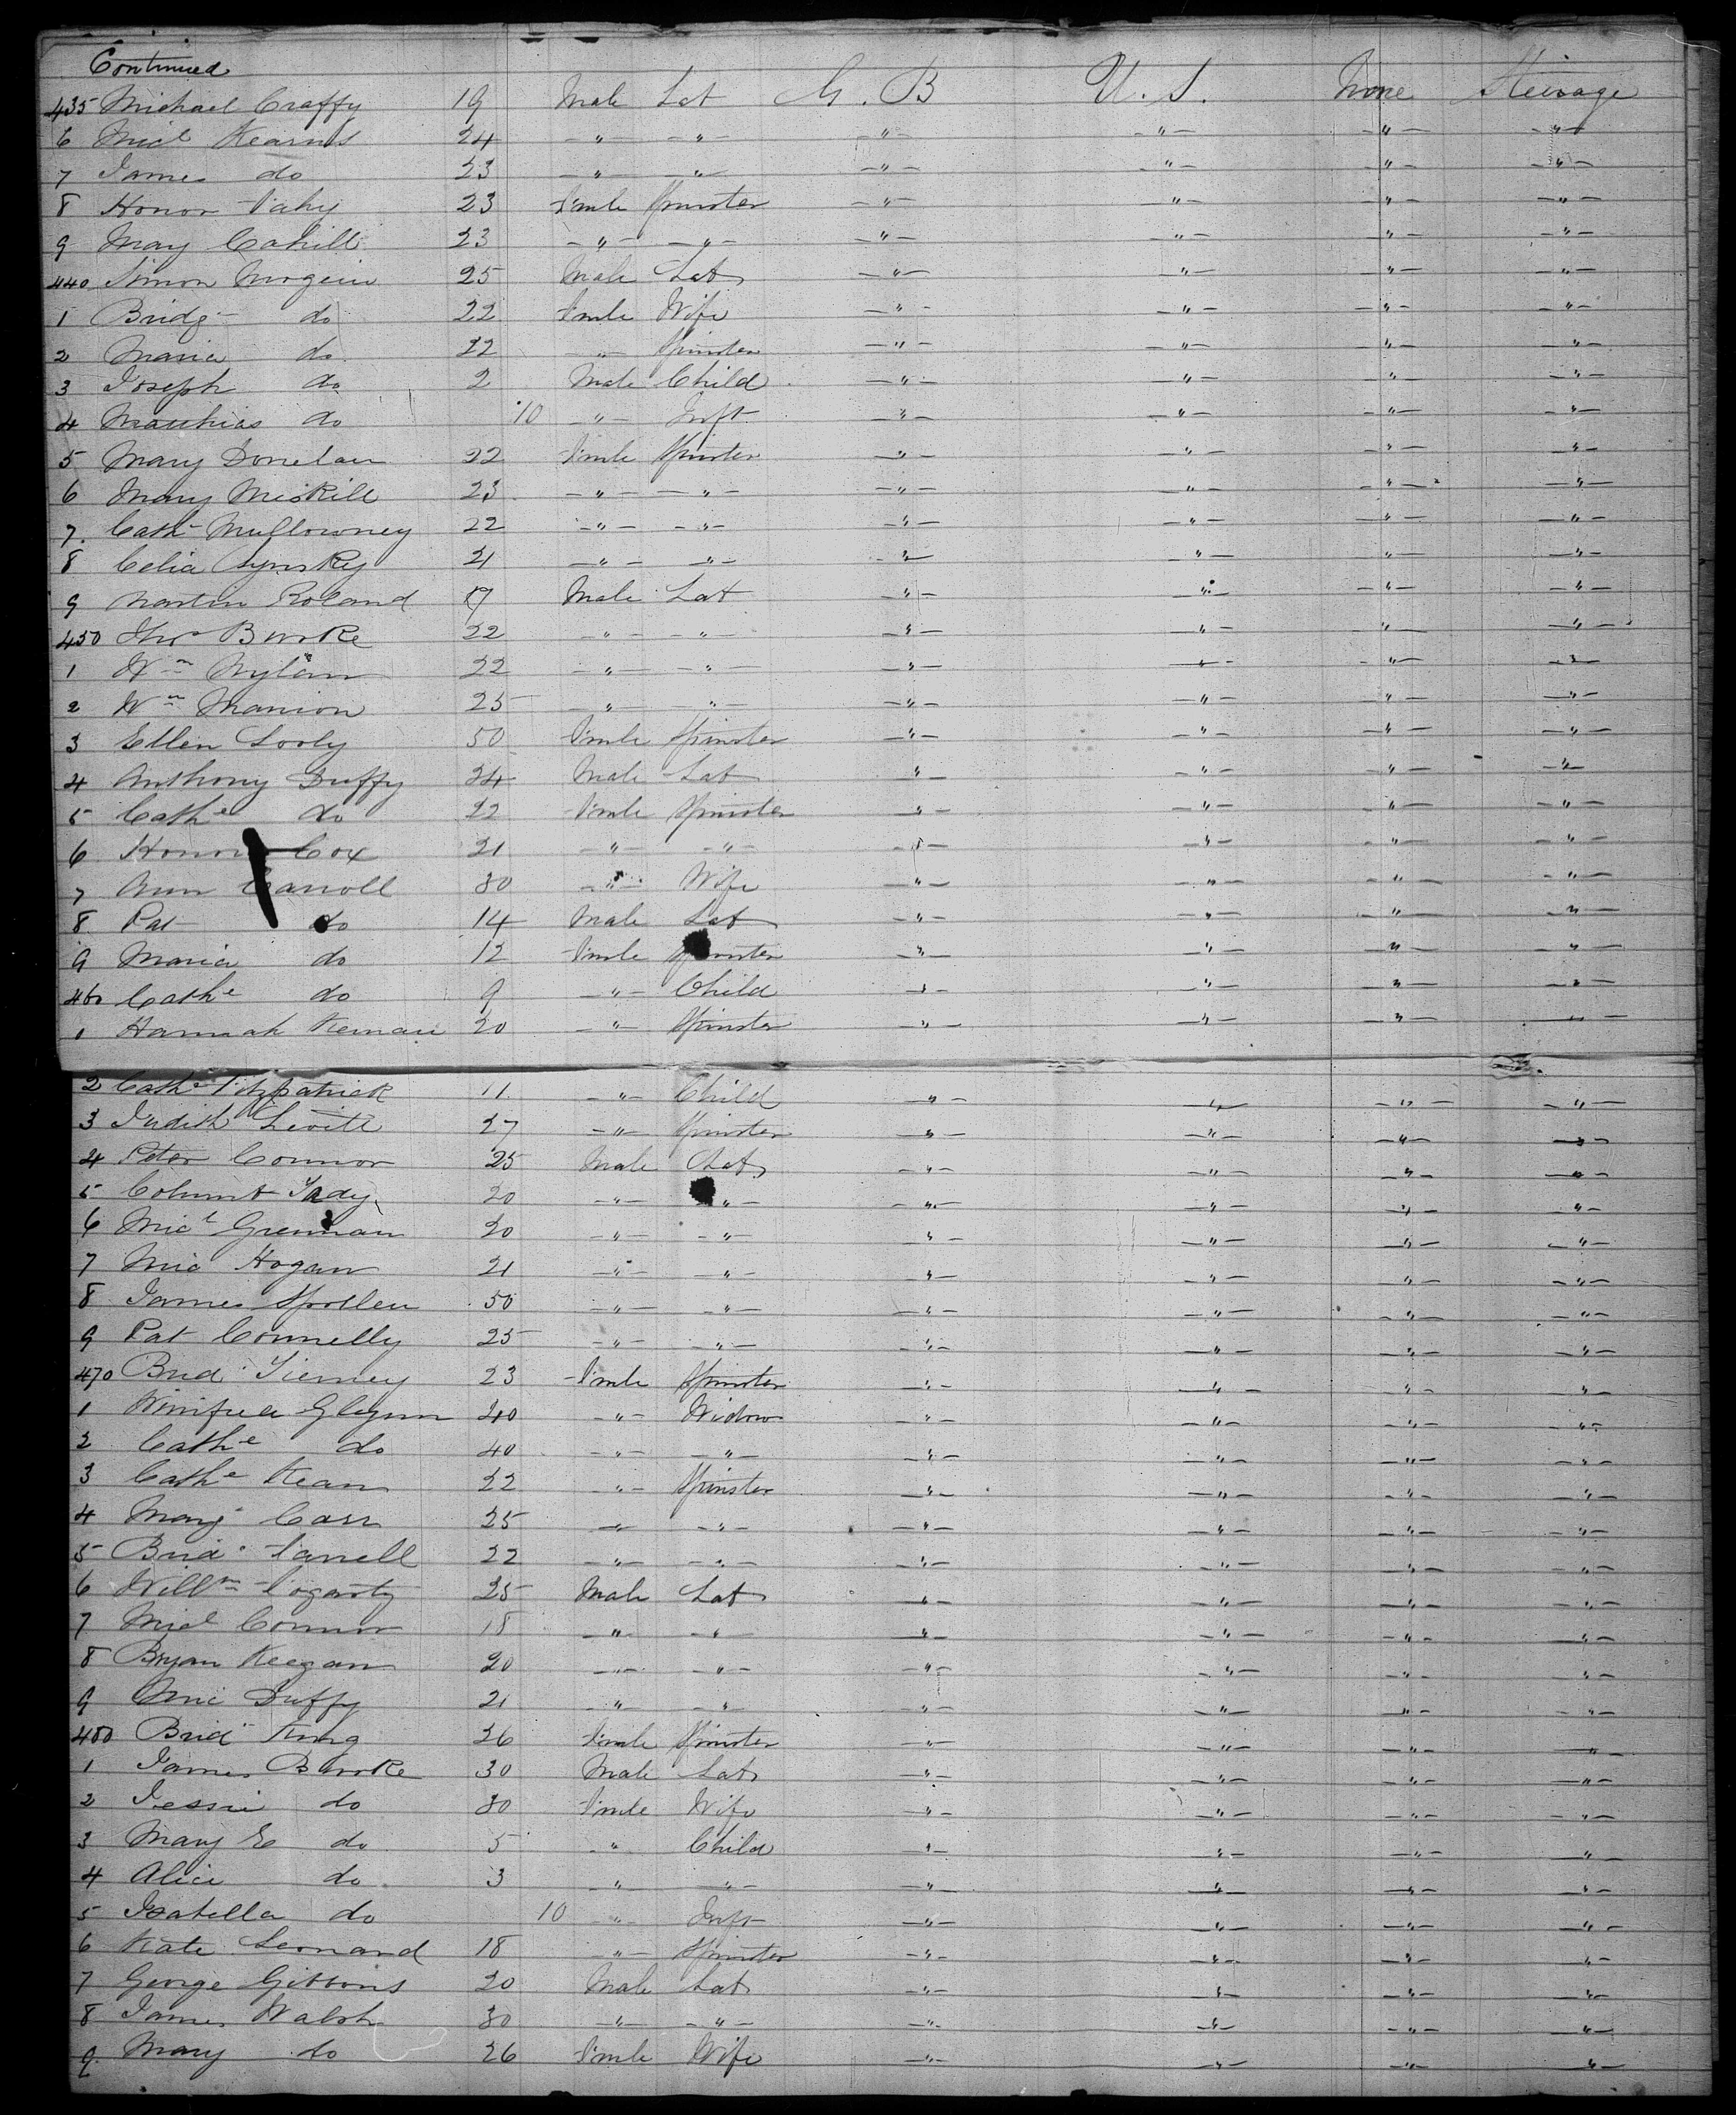 Continued
435 Michael Craffy 19 Male Lab G. B U. S. None Steerage
6 Micl Kearns 24 " " " " " "
7 James do 23 " " " " " "
8 Honor Fahy 23 F'mle Spinster " " " "
9 Mary Cahill 23 " " " " " "
440 Simon 25 Male Lab " " " "
1 Bridg do 22 F'mle Wife " " " "
2 Maria do 22 " Spinster " " " "
3 Joseph do 2 Male Child " " " "
4 Matthias do 10 " Inft " " " "
5 Mary Donelan 22 F'mle Spinster " " " "
6 Mary Miskill 23 " " " " " "
7 Cath Mullowney 22 " " " " " "
8 Celia 21 " " " " " "
9 Martin Roland 19 Male Lab " " " "
450 Thos Burke 22 " " " " " "
1 Wm Nylan 22 " " " " " "
2 Wm Manion 25 " " " " " "
3 Ellen Looly 50 F'mle Spinster " " " "
4 Anthony Duffy 24 Male Lab " " " "
5 Cathe do 22 F'mle Spinster " " " "
6 Honor Cox 21 " " " " " "
7 Ann Carroll 30 " Wife " " " "
8 Pat do 14 Male Lab " " " "
9 Maria do 12 F'mle Spinster " " " "
460 Cathe do 9 " Child " " " "
1 Hannah 20 " Spinster " " " "
2 Cathe Fitzpatrick 11 " Child " " " "
3 Judith Levill 27 " Spinster " " " "
4 Peter Connor 25 Male Lab " " " "
5 20 " " " " " "
6 Micl Grennan 20 " " " " " "
7 Mic Hogan 21 " " " " " "
8 James Spollen 50 " " " " " "
9 Pat Connelly 25 " " " " " "
470 Brid Tierney 23 F'mle Spinster " " " "
1 Winifred Glynn 40 " Widow " " " "
2 Cathe do 40 " " " " " "
3 Cathe Kean 22 " Spinster " " " "
4 Mary Carr 25 " " " " " "
5 Brid Farrell 22 " " " " " "
6 Willm Fogarty 25 Male Lab " " " "
7 Micl Connor 18 " " " " " "
8 Bryan Keegan 20 " " " " " "
9 Mic Duffy 21 " " " " " "
480 Brid King 26 F'mle Spinster " " " "
1 James Burke 30 Male Lab " " " "
2 Jessie do 30 F'mle Wife " " " "
3 Mary E do 5 " Child " " " "
4 Alice do 3 " " " " " "
5 Isabella do 10 " Inft " " " "
6 Kate Leonard 18 " Spinster " " " "
7 George Gibbons 20 Male Lab " " " "
8 James Walsh 30 " " " " " "
9 Mary do 26 F'mle Wife " " " "